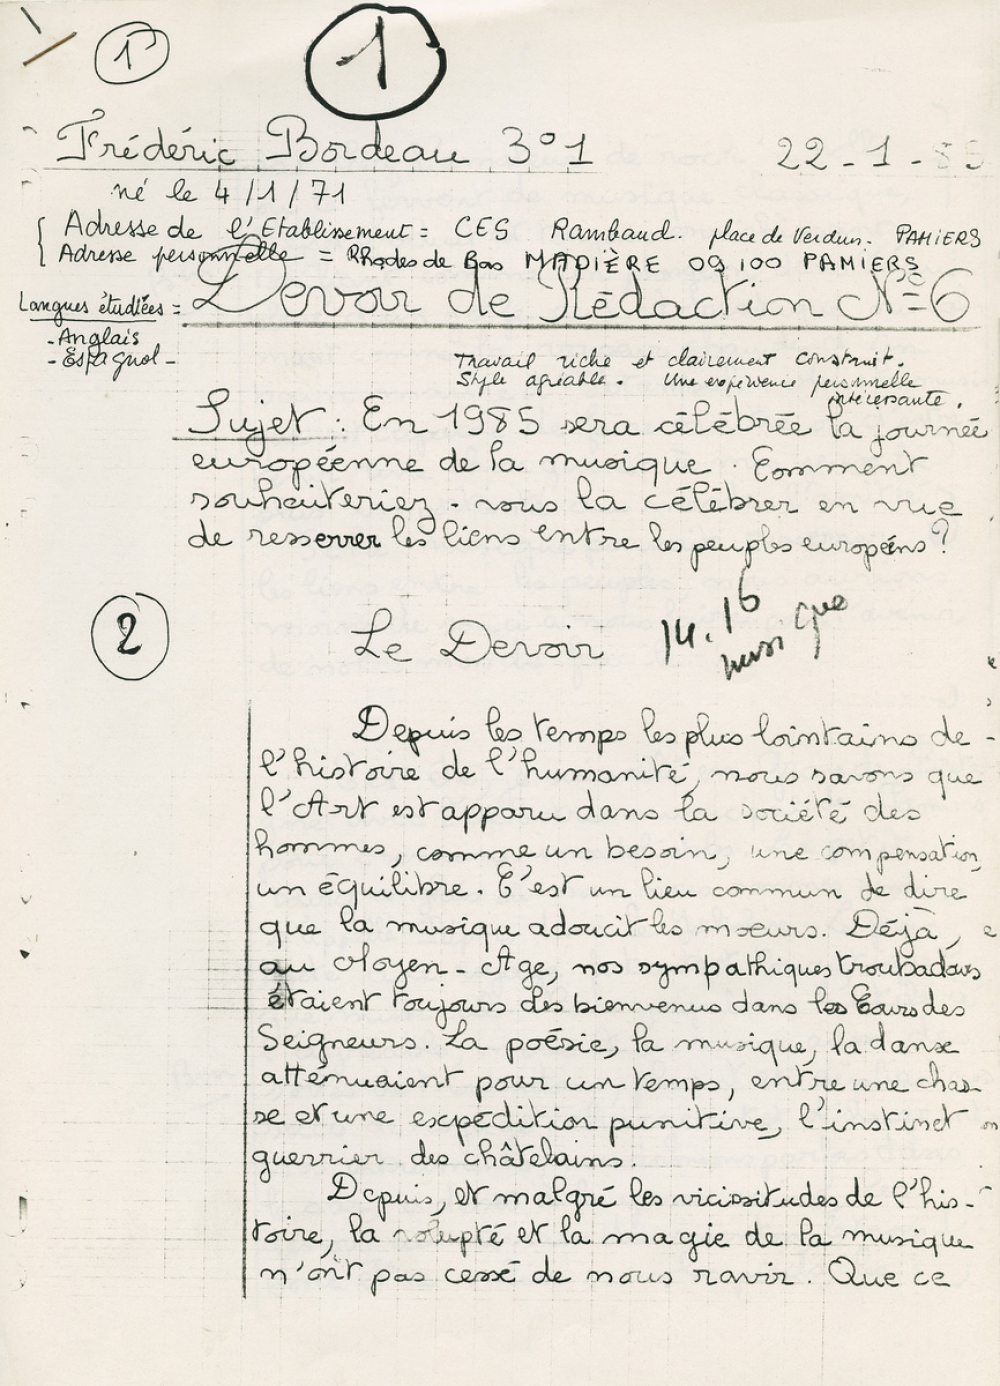 1
1
Frédéric Bordeau 3°1 22-1-85
né le 4/1/71
Adresse de l'Etablissement = CES Rambaud. place de Verdun. PAMIERS
Adresse personnelle = Rhodes de Bas MADIÈRE 09100 PAMIERS
Devoir de Rédaction N°=6
Langues étudiées =
- Anglais
- Espagnol -
Travail riche et clairement construit.
Style agréable. Une expérience personnelle
intéressante.
Sujet : En 1985 sera célébrée la journée
européenne de la musique. Comment
souhaiteriez-vous la célébrer en vue
de resserrer les liens entre les peuples européens ?
2
Le Devoir
14.16
musique
Depuis les temps les plus lointains de
l'histoire de l'humanité, nous savons que
l'Art est apparu dans la société des
hommes, comme un besoin, une compensation,
un équilibre. C'est un lieu commun de dire
que la musique adoucit les moeurs. Déjà,
au Moyen-Age, nos sympathiques troubadours
étaient toujours des bienvenus dans les Cours des
Seigneurs. La poésie, la musique, la danse
atténuaient pour un temps, entre une chas-
se et une expédition punitive, l'instinct
guerrier des châtelains.
Depuis, et malgré les vicissitudes de l'his-
toire, la volupté et la magie de la musique
n'ont pas cessé de nous ravir. Que ce